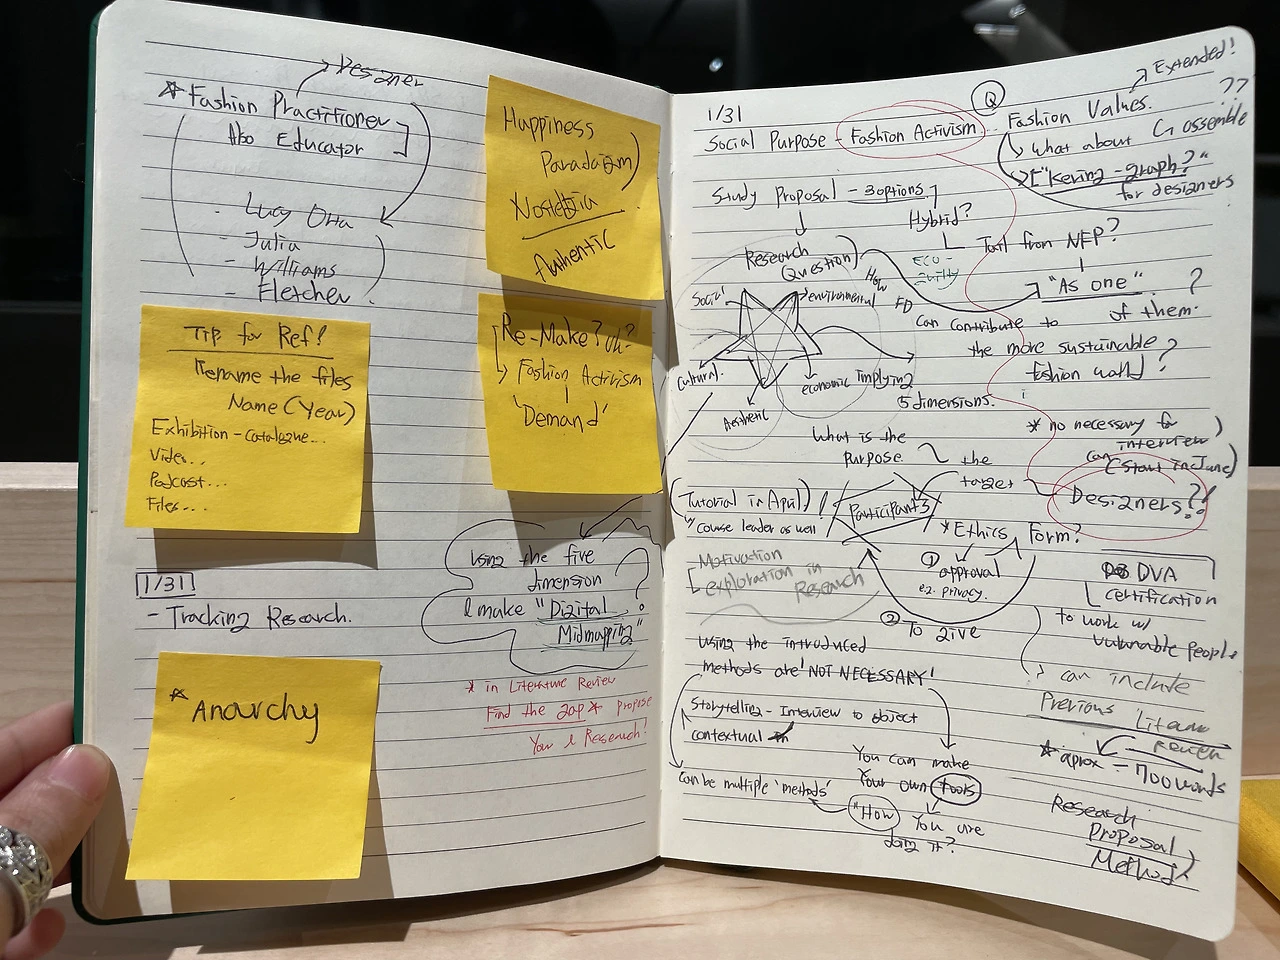 Designer
* Fashion Practitioner
Also Educator
- Lucy Orta
- Julia
- Williams
- Fletcher
Happiness
Paradaism
Nostelgia
Authentic
Tip for Ref!
Rename the files
Name (Year)
Exhibition - catalogue...
Video...
Podcast...
Files...
Re-Make? uh?
Fashion Activism
'Demand'
Using the five
dimension
I make "Digital
Midmapping" ?
1/31
- Tracking Research.
* in Literature Review
Find the gap * propose
Your Research!
* Anarchy
1/31
Social Purpose - Fashion Activism
Q
Fashion Values.
Extended!
??
what about G assemble
["Kering-graph?"
for designers
Study Proposal - 3options
Hybrid?
Research
Question
ECO-
Guilty
Tait from NFP?
"As one"
?
How FD
can contribute to of them.
the more sustainable
fashion world?
Social
environmental
Cultural.
economic
Aesthetic
Implying
5 dimensions.
* no necessary for
interview
can (start in June)
What is the
purpose
the
target
Designers?!
(Tutorial in April)
course leader as well
Participants
* Ethics Form?
Motivation
exploration in
Research
① approval
eg. privacy.
② To give
DVA
certification
to work w/
vulnerable people
can include
Previous
review
* aprox - 700 words
Using the introduced
methods are 'NOT NECESSARY'
Storytelling - Interview to object
contextual
Can be multiple 'methods'
You can make
Your own tools
"How
You are
doing it?
Research
Proposal
Method